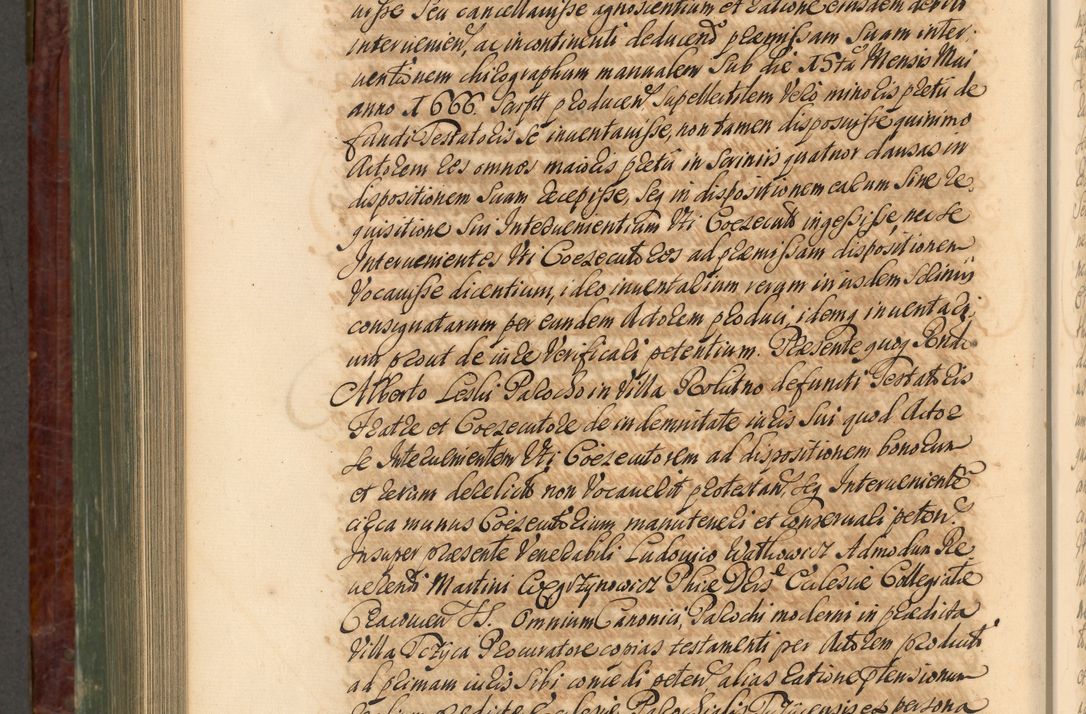 uisse seu cancellauisse agnoscentium et ratione eiusdem debiti
interuenien, ac in continenti deducend præmissam suam inter
uentionem chirographum manualem sub die 15ta Mensis Mai
anno 1666. Script producen supellectilem vero minoris pretii de
functi Testatoris se inuentauisse, non tamen disposuisse quinimo
Actorem res omnes maioris pretii in scriniis quatuor clausas in
dispositionem suam recepisse, seq in dispositionem earum sine re
quisitione sui Interuenientium uti Coexecut ingessisse, nec se
Interuenientes uti Coexecutores ad præmissam dispositionem
vocauisse dicentium, ideo inuentarium rerum in iisdem scriniis
consignatarum per eundem Actorem produci, idemq inuentari
um prout de iure verificari petentium. Præsente quoq Rend
Alberto Leski Parocho in Villa defuncti Testatoris
Fratre et Coexecutore de indemnitate iuris sui quod Actor
se Interuenientem uti Coexecutorem ad dispositionem bonorum
et rerum derelict non vocauerit protestan, seq Interueniente
circa munus Coexecutorium manuteneri et conseruari peten.
Insuper præsente Venerabili Ludouico Admodum Re
uerendi Martini Phiæ Dris Ecclesiæ Collegiatæ
Cracouien SS. Omnium Canonici, Parochi moderni in prædicta
Villa Tczyca Procuratore copias testamenti per Actorem product
ad primam iuris sibi concedi peten alias ratione ptensionum
Ecclesiæ Parochialis ex persona